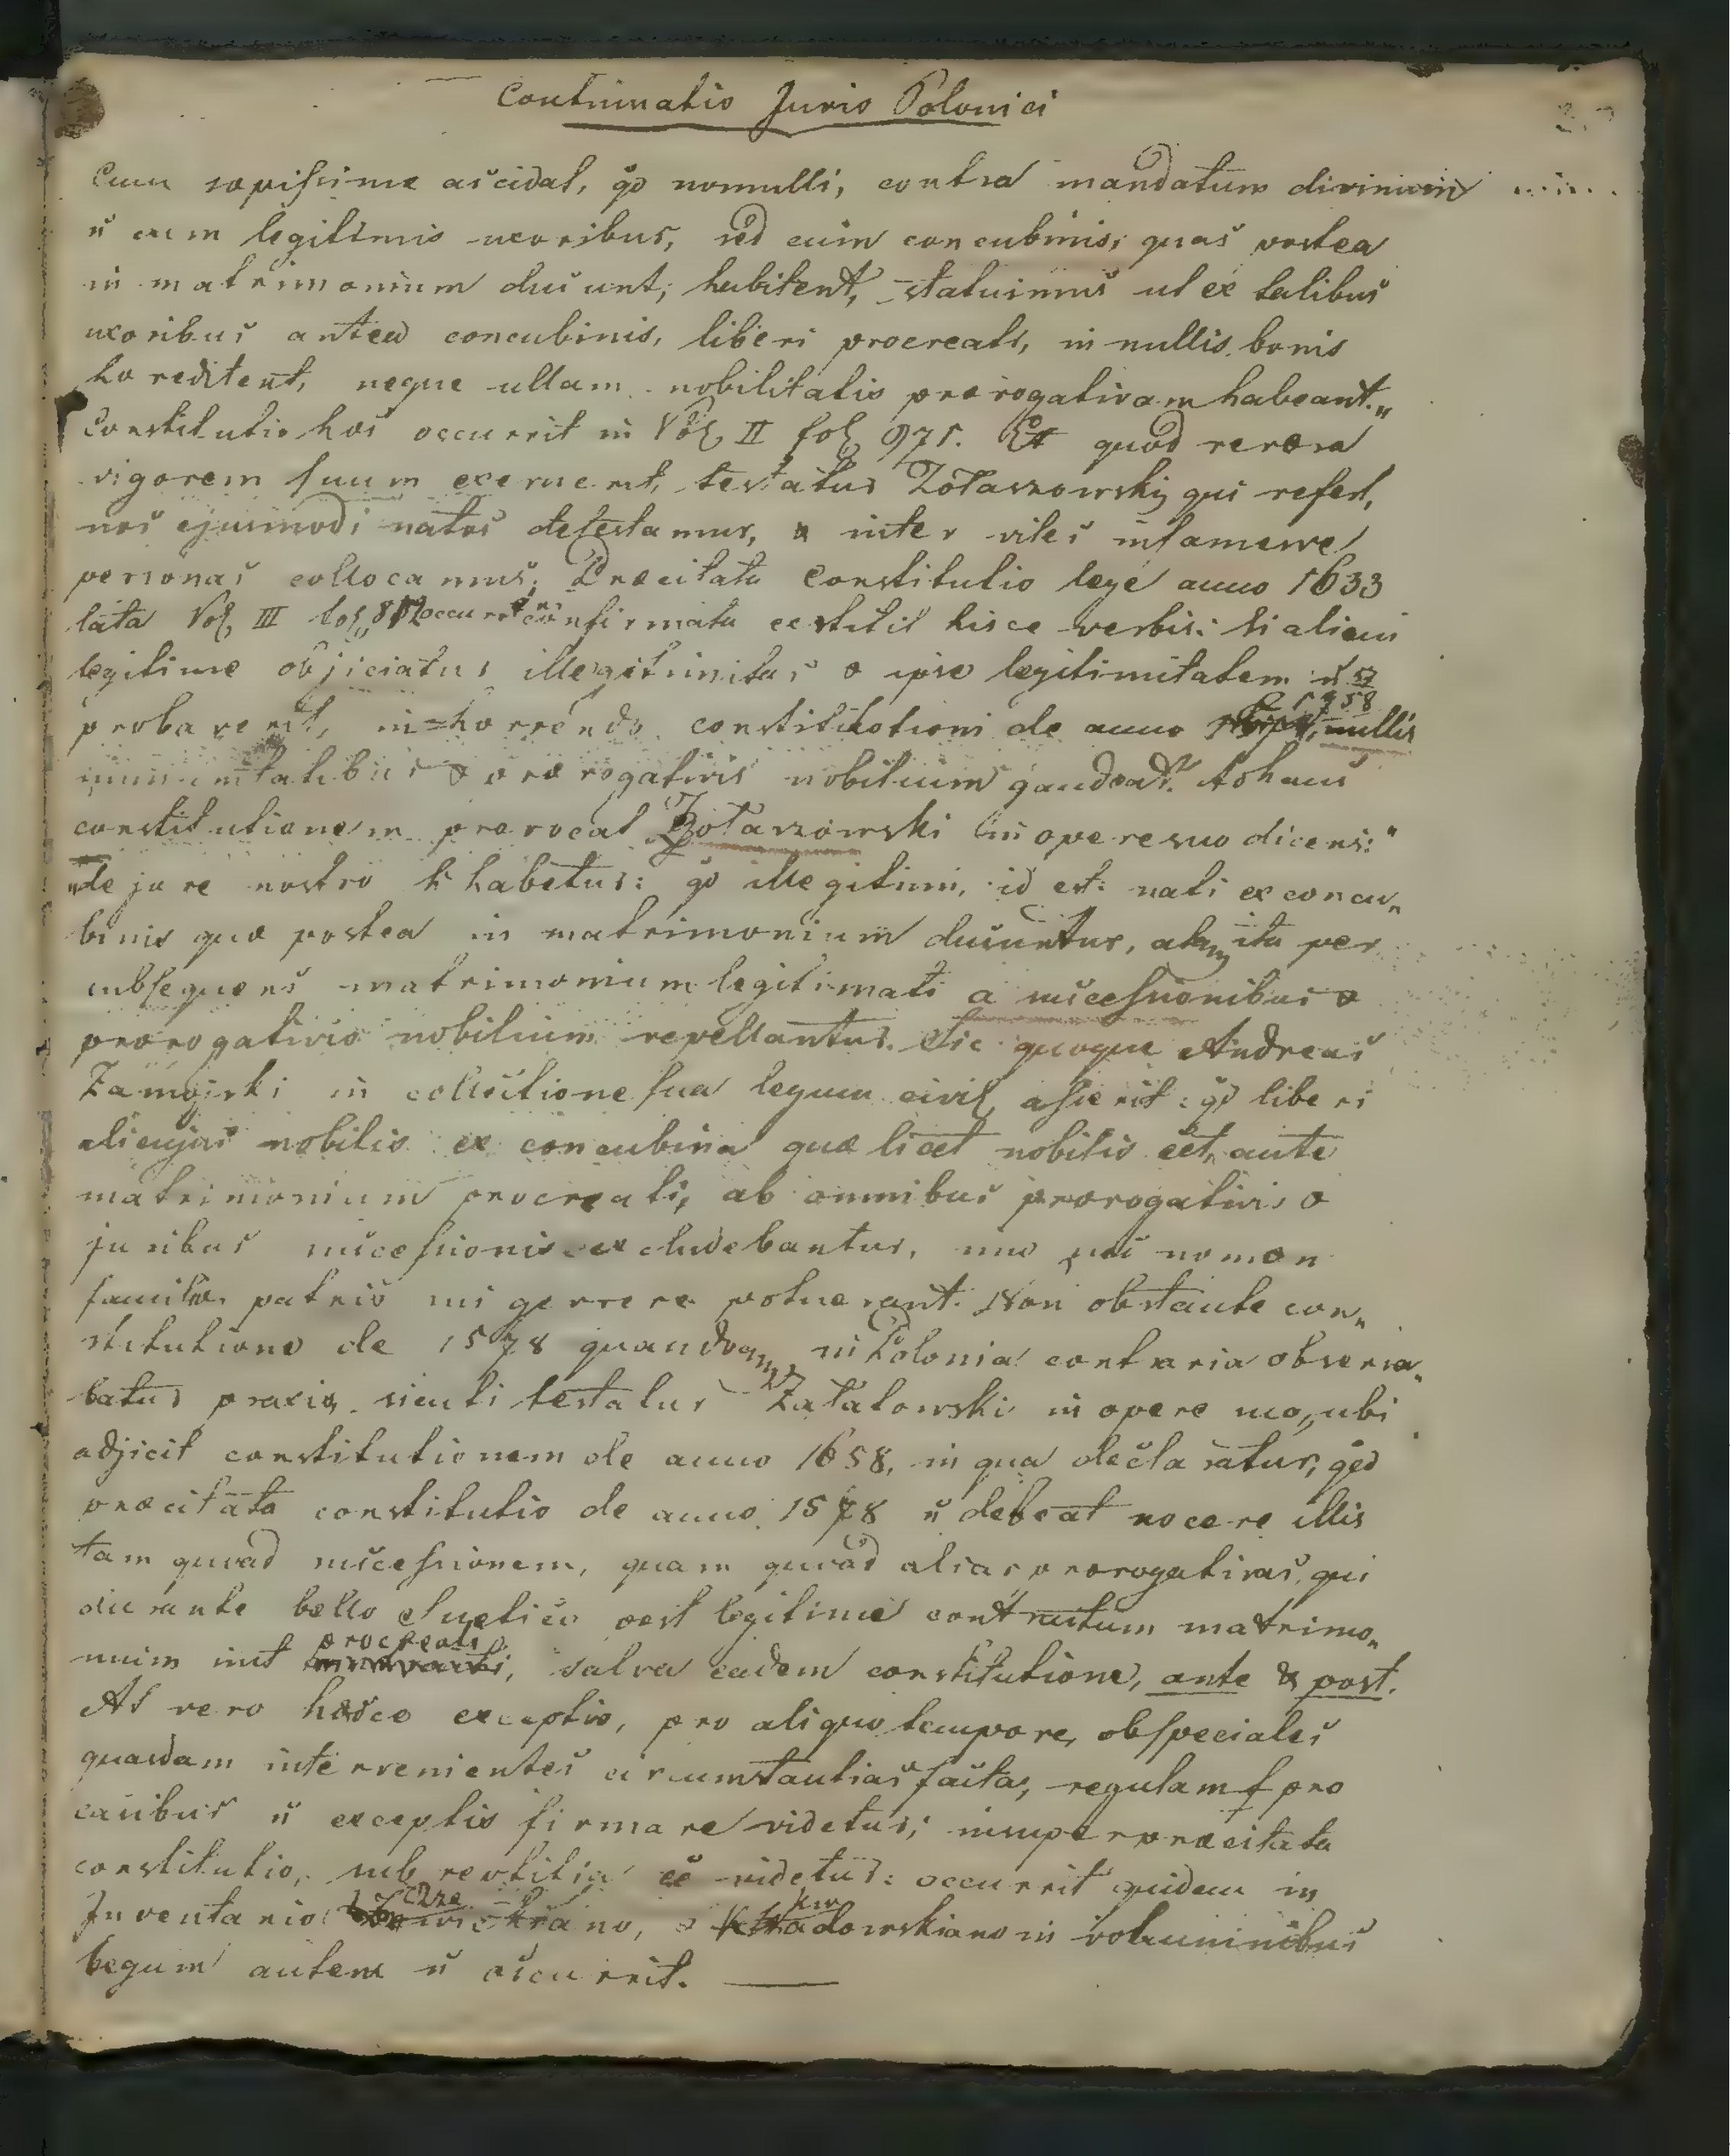 Continuatio Juris Polonici
Cum sæpissime accidat, qd nonnulli, contra mandatum divinum
ñ cum legitimis uxoribus, sed cum concubinis, quas postea
in matrimonium ducunt, habitent, statuimus ut ex talibus
uxoribus antea concubinis, liberi procreati, in nullis bonis
hæreditent, neque ullam nobilitatis prærogativam habeant.„
Constitutio hæc occurrit in Vol, II fol, 971. Et quod revera
vigorem suum exercuerit, testatur Zołaszowski, qui refert,
nos ejusmodi natos detestamur, & inter viles infamesve
personas collocamus; Præcitata Constitutio lege anno 1633
lata Vol, III fol, occurrit confirmata extitit hisce verbis: si alicui
legitime objiciatur illegitimitas & ipse legitimitatem ñ
probaverit, in hærendo constitutioni de anno nullis
immunitatibus & prærogativis nobilium gaudeat. Ad hanc
constitutionem provocat Zołaszowski in opere suo dicens:"
„de jure nostro si habetur: qd illegitimi, id est: nati ex concu„
binis quæ postea in matrimonium ducuntur, atq ita per
subsequens matrimonium legitimati a successionibus &
prærogativis nobilium repellantur. Sic quoque Andreas
Zamojski in collectione sua legum civil, asserit: qd liberi
alicujus nobilis ex concubina quæ licet nobilis eet, ante
matrimonium procreati, ab omnibus prærogativis &
juribus successionis excludebantur, imo nec nomen
familiæ patris sui gerere potuerant. Non obstante con„
stitutione de 1578 quandoq, in Polonia contraria observa„
batur praxis, sicuti testatur Załatowski in opere suo, ubi
adjicit constitutionem de anno 1658, in qua declaratur, qd
præcitata constitutio de anno 1578 ñ debeat nocere illis
tam quoad successionem, quam quoad alias prærogativas, qui
durante bello Suetico post legitime contractum matrimo„
nium sunt procreati, salva eadem constitutione, ante & post.
At vero hæcce exceptio, pro aliquo tempore, ob speciales
quasdam intervenientes circumstantias facta, regulam pro
casibus ñ exceptis firmare videtur; insuper præcitata
constitutio, subreptitia ee videtur: occurrit quidem in
Inventario in voluminibus
legum autem ñ occurrit.